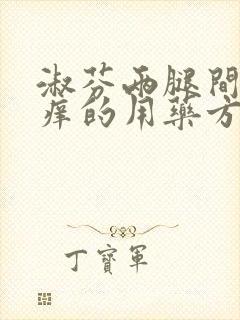 淑芬两腿间
痒的用药方
丁寶軍